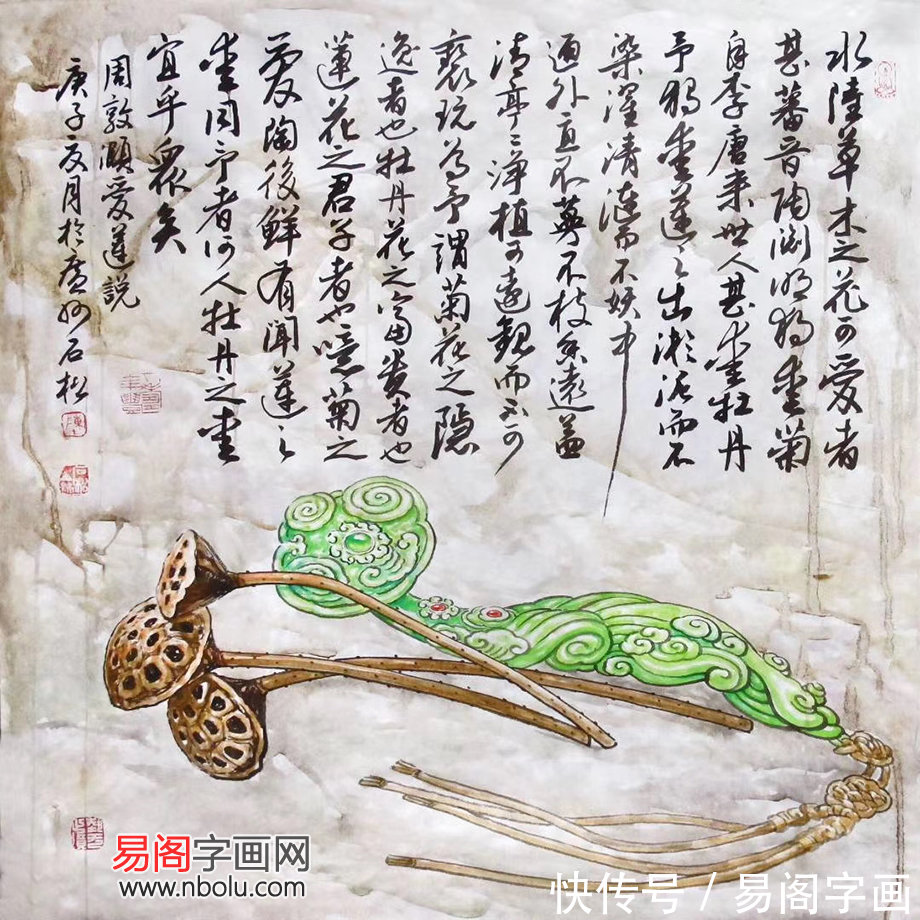 水陸草木之花可愛者
甚蕃晋陶渊明独愛菊
自李唐来世人甚愛牡丹
予独愛蓮之出淤泥而不
染濯清漣而不妖中
通外直不蔓不枝香遠益
清亭亭净植可遠観而不可
褻玩焉予謂菊花之隐
逸者也牡丹花之富貴者也
蓮花之君子者也噫菊之
愛陶後鮮有聞蓮之
愛同予者何人牡丹之愛
宜乎衆矣
周敦頤愛蓮説
庚子夏月於廬州石松
易阁字画网
www.nbolu.com
快传号 / 易阁字画